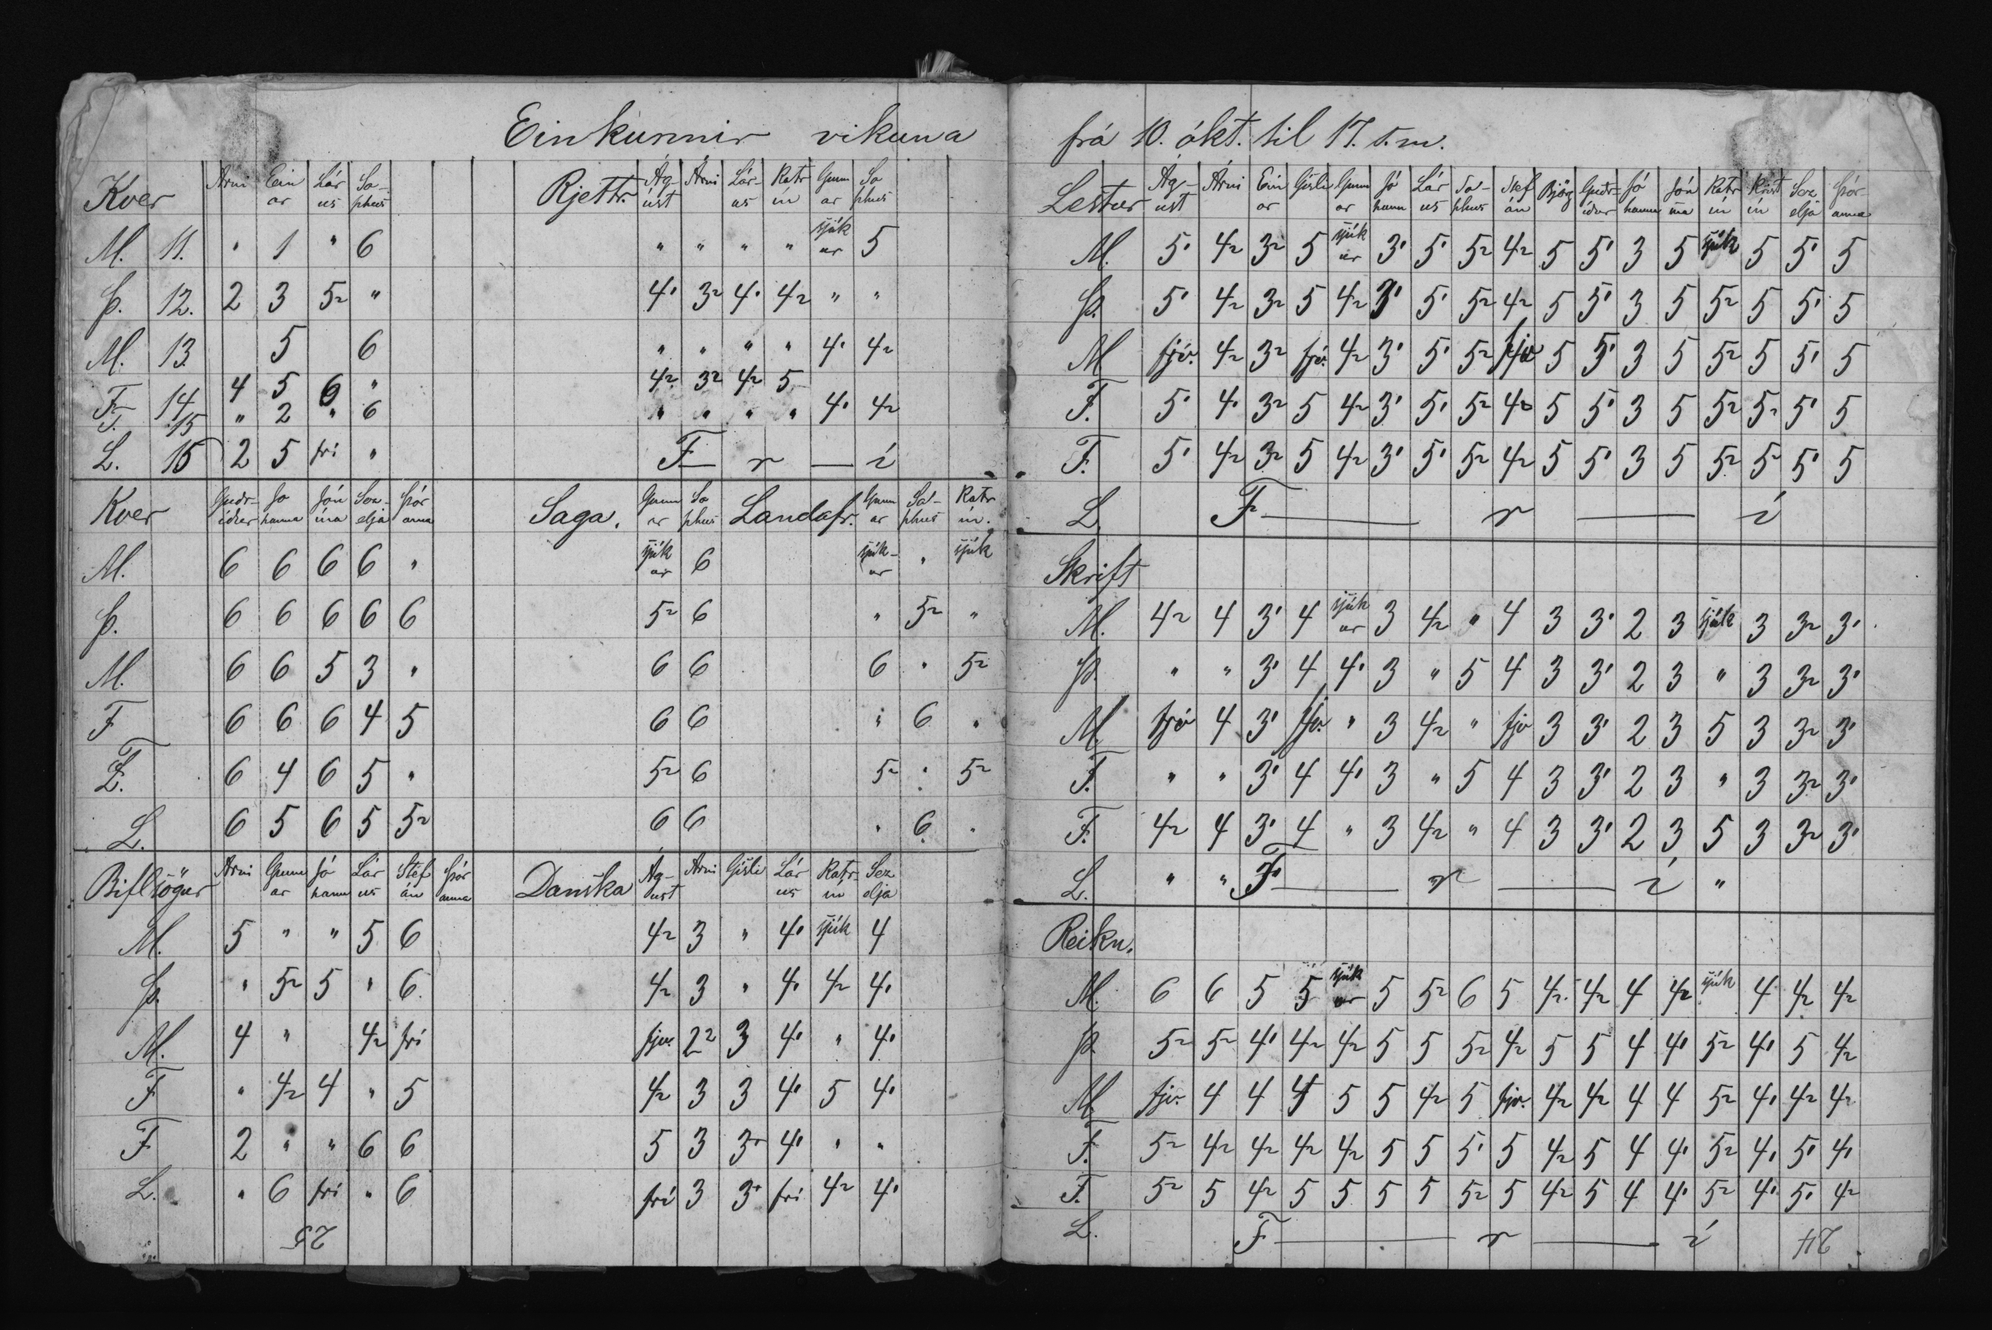 Einkunnir vikuna
Kver Árni Einar Lárus Sophus Rjettr. Ágúst Árni Lárus Katrín Gunnar Sophus
M. 11. " 1 " 6 " " " " sjúkur 5
Þ. 12. 2 3 52 " 4' 32 4' 42 " "
M. 13. 5 6 " " " " 4' 42
F. 14. 4 5 6 " 42 32 42 5
F. 15 " 2 " 6 " " " " 4' 42
L. 16 2 5 frí " F — r — í
Kver Guðríður Jóhanna Jónína Sezelja Þóranna Saga. Gunnar Sophus Landafr. Gunnar Sophus Katrín.
M. 6 6 6 6 " sjúkur 6 sjúkur " sjúk
Þ. 6 6 6 6 6 52 6 " 52 "
M. 6 6 5 3 " 6 6 6 " 52
F 6 6 6 4 5 6 6 " 6 "
F. 6 4 6 5 " 52 6 52 " 52
L. 6 5 6 5 52 6 6 " 6 "
Biflsögur Árni Gunnar Jóhann Lárus Stefán Þóranna Danska Ágúst Árni Gísli Lárus Katrín Sezelja
M. 5 " " 5 6 42 3 " 4' sjúk 4
Þ. " 52 5 " 6 42 3 " 4' 42 4'
M. 4 " 42 frí fjv. 22 3 4' " 4'
F " 42 4 " 5 42 3 3 4' 5 4'
F. 2 " " 6 6 5 3 3' 4' " "
L. " 6 frí " 6 frí 3 3' frí 42 4'
25
frá 10. ókt. til 17. s.m.
Lestur Ágúst Árni Einar Gísli Gunnar Jóhann Lárus Sophus Stefán Björg Guðríður Jóhanna Jónína Katrín Kristín Sezelja Þóranna
M. 5' 42 32 5 sjúkur 3' 5' 52 42 5 5' 3 5 sjúk 5 5' 5
Þ. 5' 42 32 5 42 3' 5' 52 42 5 5' 3 5 52 5 5' 5
M fjv. 42 32 fjv. 42 3' 5' 52 fjv 5 5' 3 5 52 5 5' 5
F. 5' 4' 32 5 42 3' 5' 52 42 5 5' 3 5 52 5 5' 5
F. 5' 42 32 5 42 3' 5' 52 42 5 5' 3 5 52 5 5' 5
L. F — r — í
Skrift
M. 42 4 3' 4 sjúkur 3 42 " 4 3 3' 2 3 sjúk 3 32 3'
Þ. " " 3' 4 4' 3 " 5 4 3 3' 2 3 " 3 32 3'
M. fjv 4 3' fjv. " 3 42 " fjv 3 3' 2 3 5 3 32 3'
F. " " 3' 4 4' 3 " 5 4 3 3' 2 3 " 3 32 3'
F. 42 4 3' 4 " 3 42 " 4 3 3' 2 3 5 3 32 3'
L. " " F — r — í "
Reikn.
M. 6 6 5 5 sjúkur 5 52 6 5 42 42 4 42 sjúk 4 42 42
Þ. 52 52 4' 42 42 5 5 52 42 5 5 4 4' 52 4' 5 42
M. fjv. 4 4 4 5 5 42 5 fjv. 42 42 4 4 52 4' 42 42
F. 52 42 42 42 42 5 5 5' 5 42 5 4 4' 52 4' 5' 4'
F. 52 5 42 5 5 5 5 52 5 42 5 4 4' 52 4' 5' 42
L. F — r — í
24